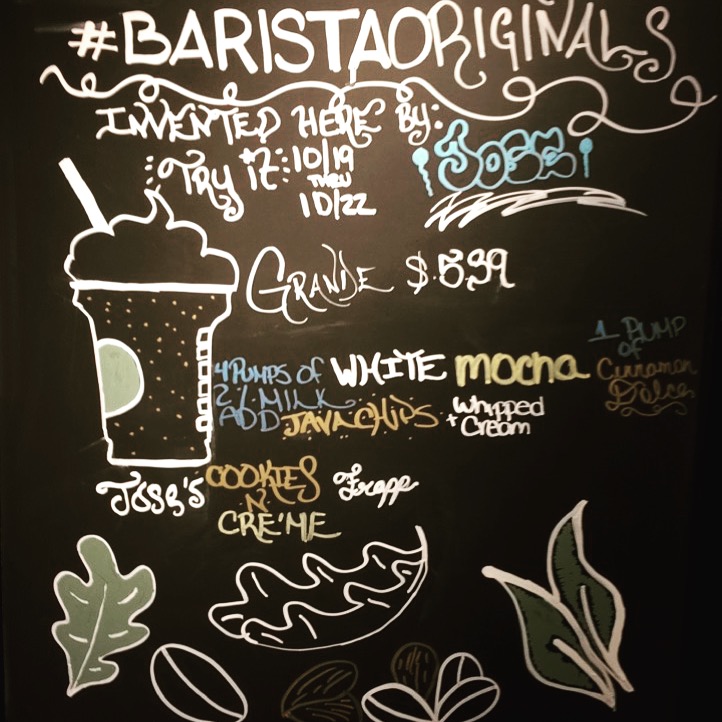 #BARISTAORIGINALS
INVENTED HERE BY:
JOSE
TRY IT: 10/19
THRU
10/22
GRANDE $5.39
1 PUMP
of
Cinnamon
Dolce
4 PUMPS of WHITE mocha
2% MILK
ADD JAVA CHIPS + Whipped
Cream
JOSE'S COOKIES Frapp
N
CRE'ME